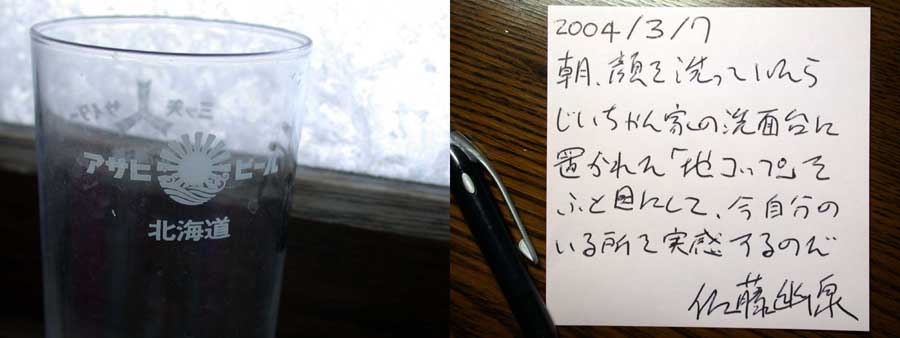 三ツ サイダー
アサヒ ビール
北海道
2004/3/7
朝、顔を洗っていたら
じいちゃん家の洗面台に
置かれた「地コップ」を
ふと目にして、今自分の
いる所を実感するのだ
佐藤